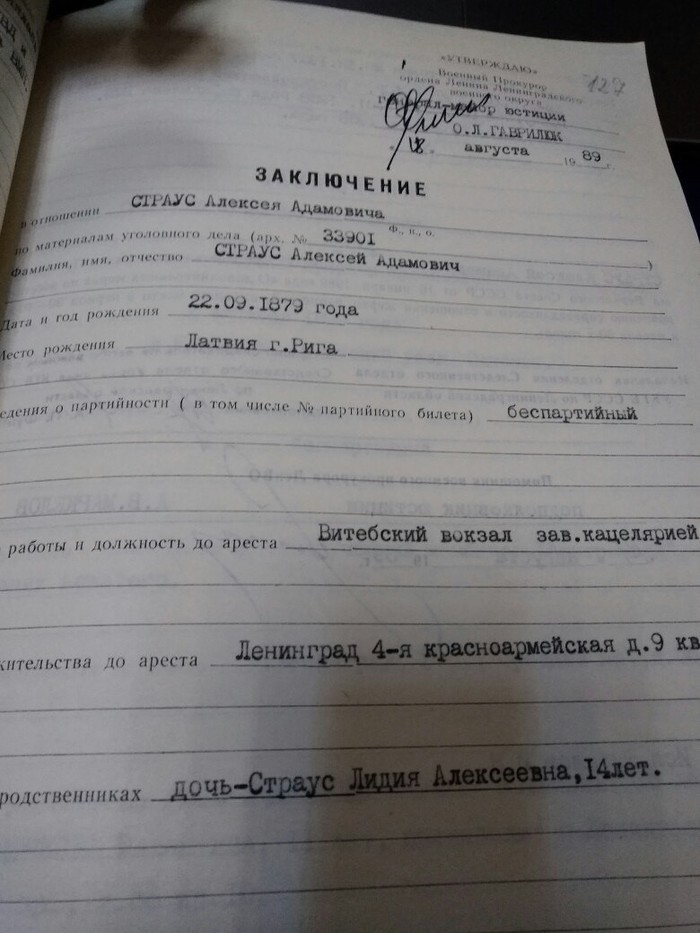 «УТВЕРЖДАЮ»
127
Военный Прокурор
ордена Ленина Ленинградского
военного округа
юстиции
О.Л.ГАВРИЛЮК
"18" августа 1989 г.
ЗАКЛЮЧЕНИЕ
в отношении СТРАУС Алексея Адамовича
Ф., и., о.
по материалам уголовного дела (арх. № 33901 )
Фамилия, имя, отчество СТРАУС Алексей Адамович
Дата и год рождения 22.09.1879 года
Место рождения Латвия г.Рига
едения о партийности ( в том числе № партийного билета) беспартийный
работы и должность до ареста Витебский вокзал зав.кацелярией
жительства до ареста Ленинград 4-я красноармейская д.9 кв
родственниках дочь-Страус Лидия Алексеевна,14лет.